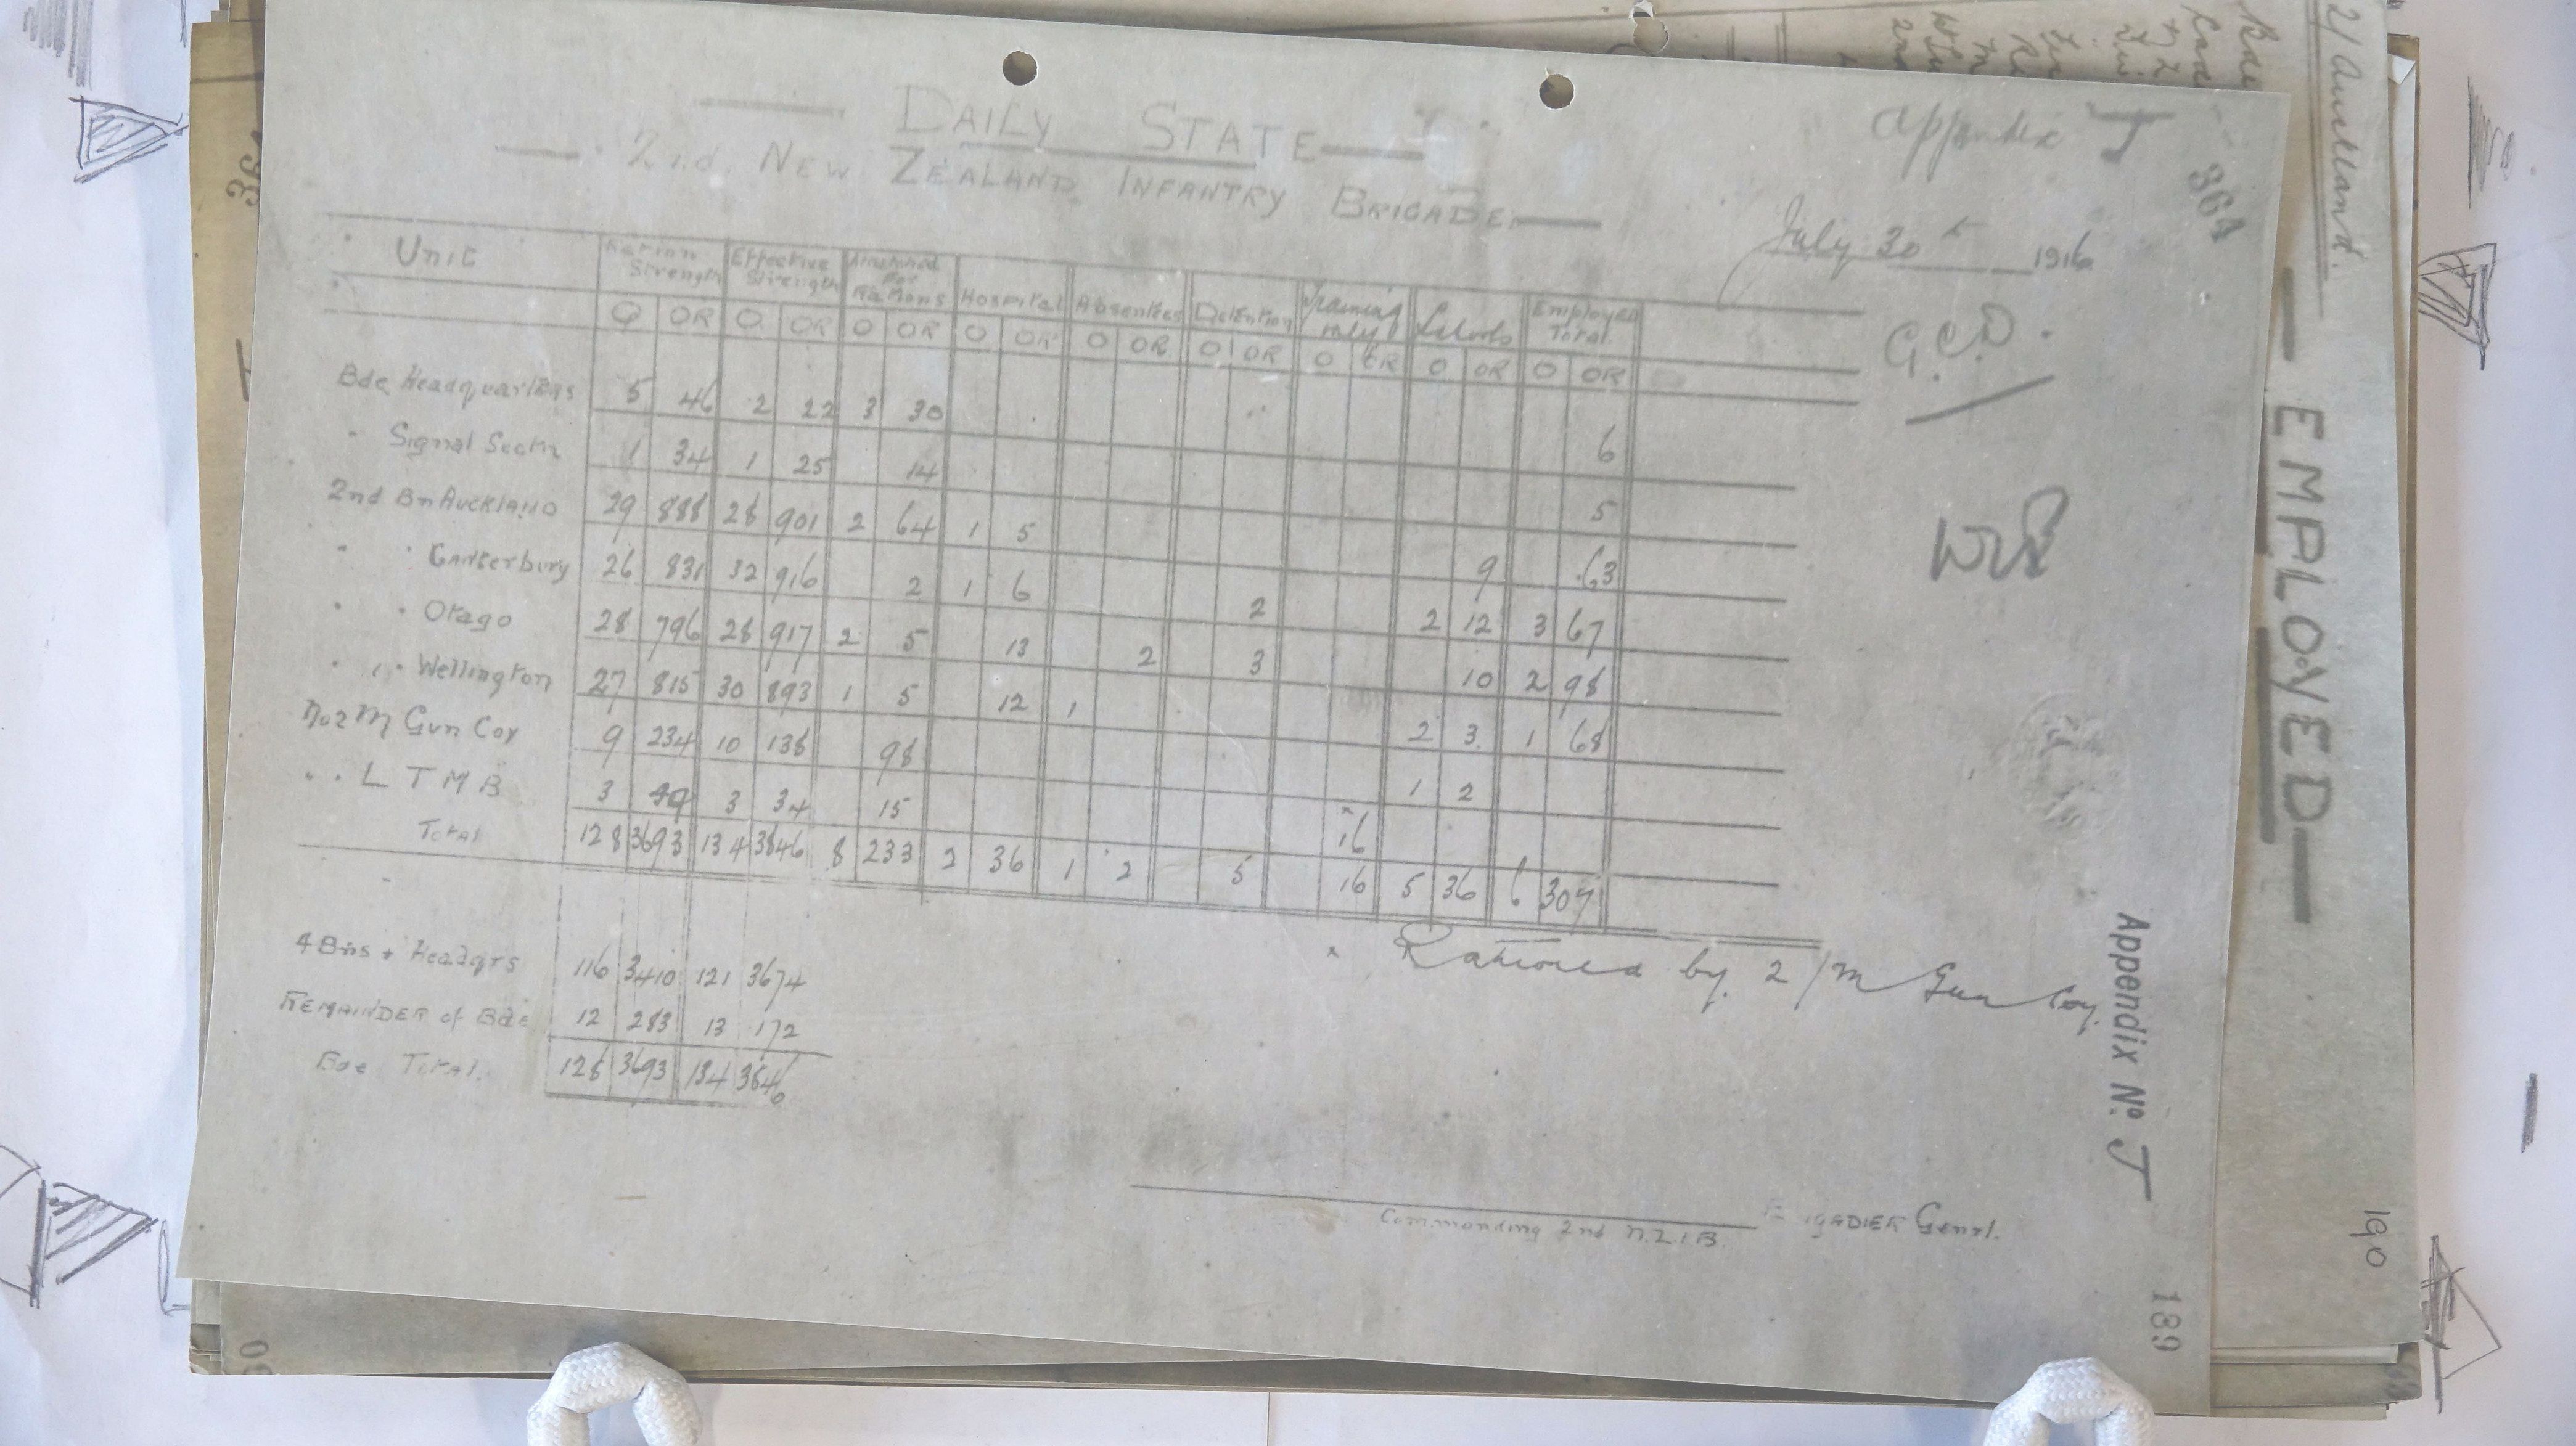 DAILY STATE
2nd. NEW ZEALAND INFANTRY BRIGADE
Appendix J
364
July 30th 1916
G.C.D.
Unit Ration Strength Effective Strength Attached For Rations Hospital Absentees Detention Training only Schools Employed Total
O OR O OR O OR O OR O OR O OR O OR O OR O OR
Bde Headquarters 5 46 2 22 3 30 6
" Signal Sectn 1 34 1 25 14 5
2nd Bn Auckland 29 888 28 901 2 64 1 5 9 63
" " Canterbury 26 831 32 916 2 1 6 2 2 12 3 67
" " Otago 28 796 28 917 2 5 13 2 3 10 2 98
" " Wellington 27 815 30 893 1 5 12 1 2 3 1 68
No 2 M Gun Coy 9 234 10 138 98 1 2
" " L T M B 3 49 3 34 15 x 16
Total 128 3693 134 3846 8 233 2 36 1 2 5 16 5 36 6 307
x Rationed by 2/M Gun Coy.
4 Bns + Headqrs 116 3410 121 3674
REMAINDER of Bde 12 283 13 172
Bde Total. 128 3693 134 3846
BRIGADIER Genrl.
Commanding 2nd N.Z.I.B.
Appendix No. J
189
2/Auckland.
EMPLOYED
190